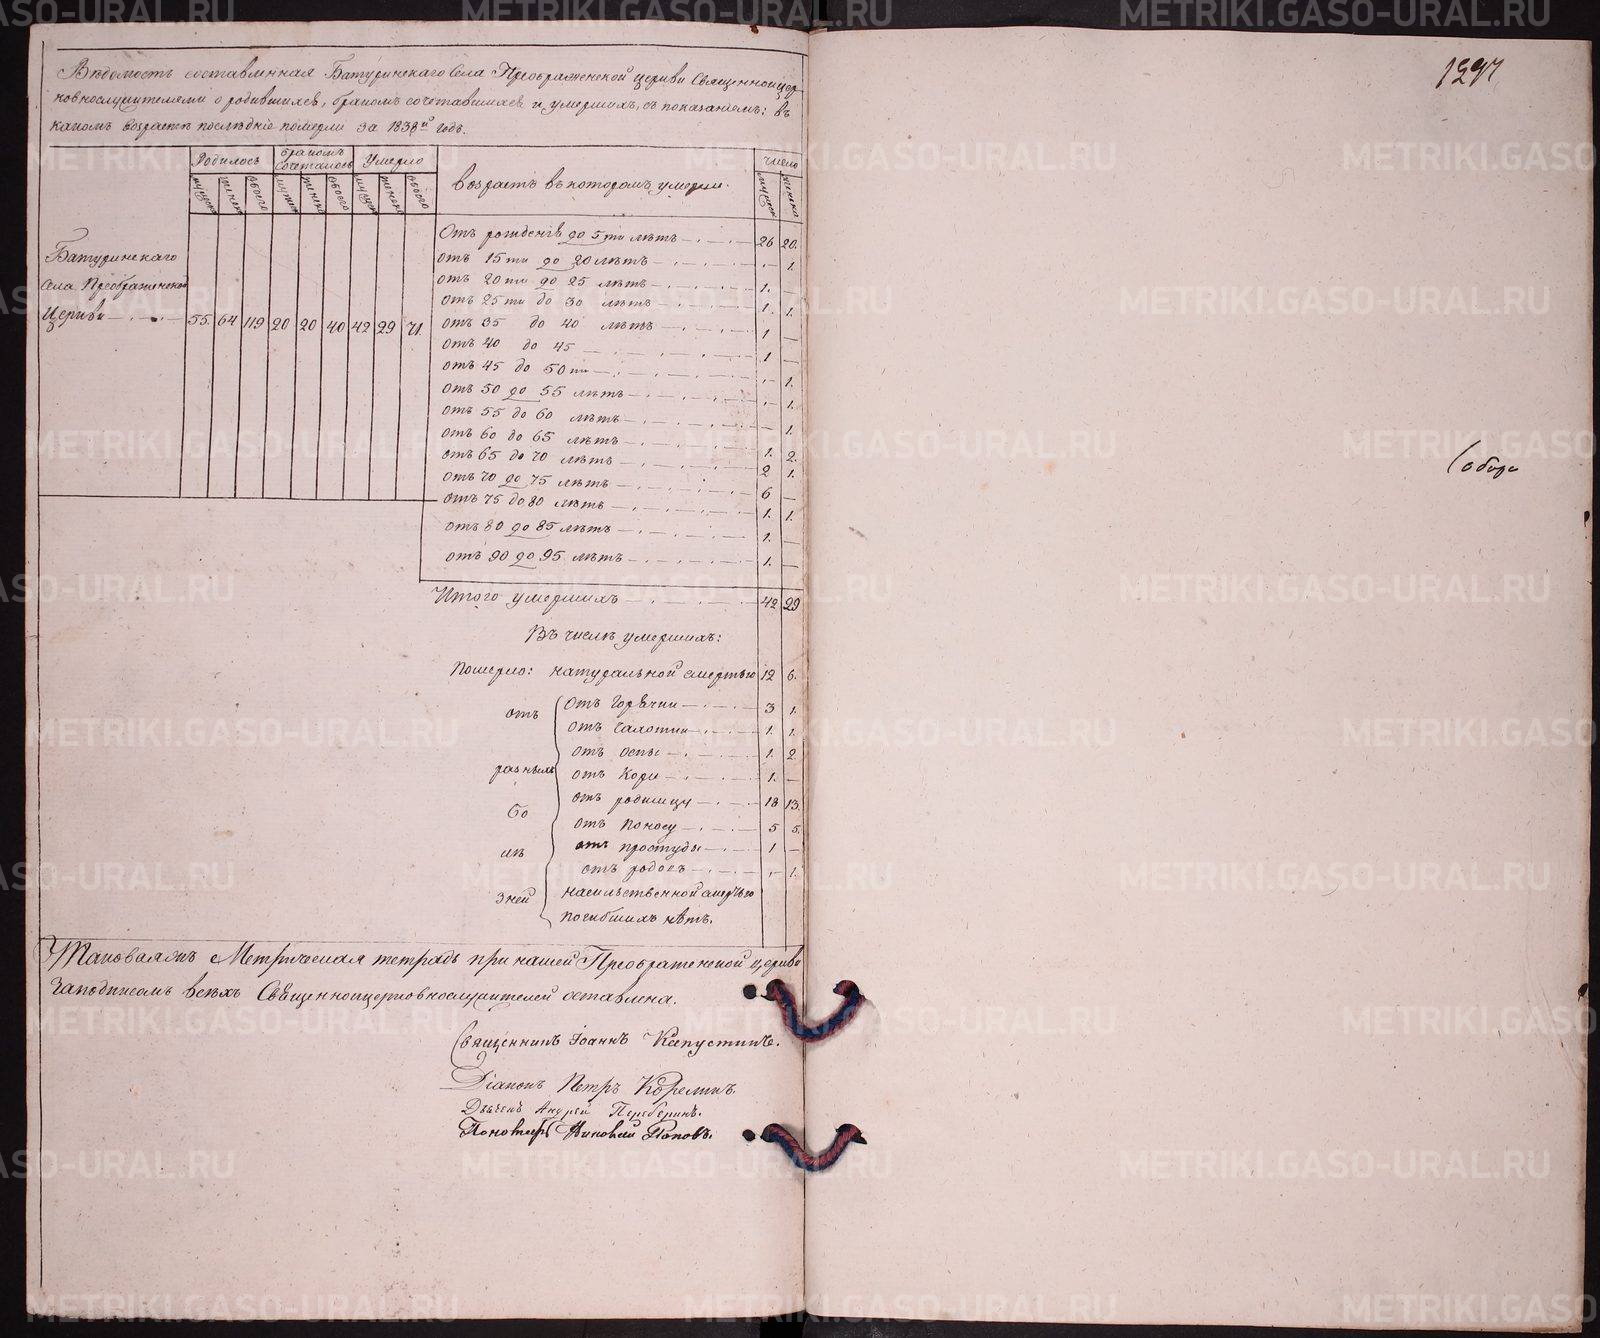 Вѣдомость составленная Батуринскаго Села Преображенской церкви Священноцер-
ковнослужителями о родившихся, бракомъ сочетавшихся и умершихъ, съ показаніемъ: въ
какомъ возрастѣ послѣдніе померли за 1838й годъ.
Родилось Бракомъ Сочеталось Умерло возрастъ въ которомъ умерли. число
мужеска женска обоего мужеска женска обоего мужеска женска обоего мужеска женска
Батуринскаго
села Преображенской
Церкви 55. 64 119 20 20 40 42 29 71.
Отъ рожденія до 5ти лѣтъ 26 20.
отъ 15ти до 20 лѣтъ - 1.
отъ 20ти до 25 лѣтъ 1. -
отъ 25ти до 30 лѣтъ 1. 1.
отъ 35 до 40 лѣтъ 1 -
отъ 40 до 45 1 -
отъ 45 до 50ти - 1.
отъ 50 до 55 лѣтъ - 1.
отъ 55 до 60 лѣтъ - 1.
отъ 60 до 65 лѣтъ 1. 2.
отъ 65 до 70 лѣтъ 2 1.
отъ 70 до 75 лѣтъ 6 -
отъ 75 до 80 лѣтъ 1. 1.
отъ 80 до 85 лѣтъ 1. -
отъ 90 до 95 лѣтъ 1. -
Итого умершихъ 42 29
Въ числѣ умершихъ:
Померло: натуральной смертью 12 6.
отъ разныхъ болѣзней
отъ Горѣчки 3 1.
отъ Чахотки 1. 1.
отъ оспы 1. 2
отъ Кори 1. -
отъ родимцу 18 13.
отъ Поносу 5 5.
отъ простуды 1 -
отъ родовъ - 1.
насильственной смертью
погибшихъ нѣтъ.
Таковаяжъ Метрическая тетрадь при нашей Преображенской церкви
заподписомъ всѣхъ Священноцерковнослужителей оставлена.
Священникъ Іоаннъ Капустинъ.
Діаконъ Петръ Корелинъ.
Дьячекъ Андрей Переберинъ.
Пономарь Николай Поповъ.
1297
METRIKI.GASO-URAL.RU